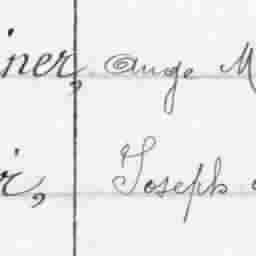 iner, Ange M
r, Joseph